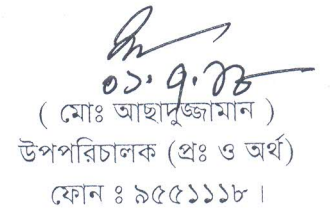 ০১.৭.১৮
( মোঃ আছাদুজ্জামান )
উপপরিচালক (প্রঃ ও অর্থ)
ফোন ঃ ৯৫৫১১১৮ ।